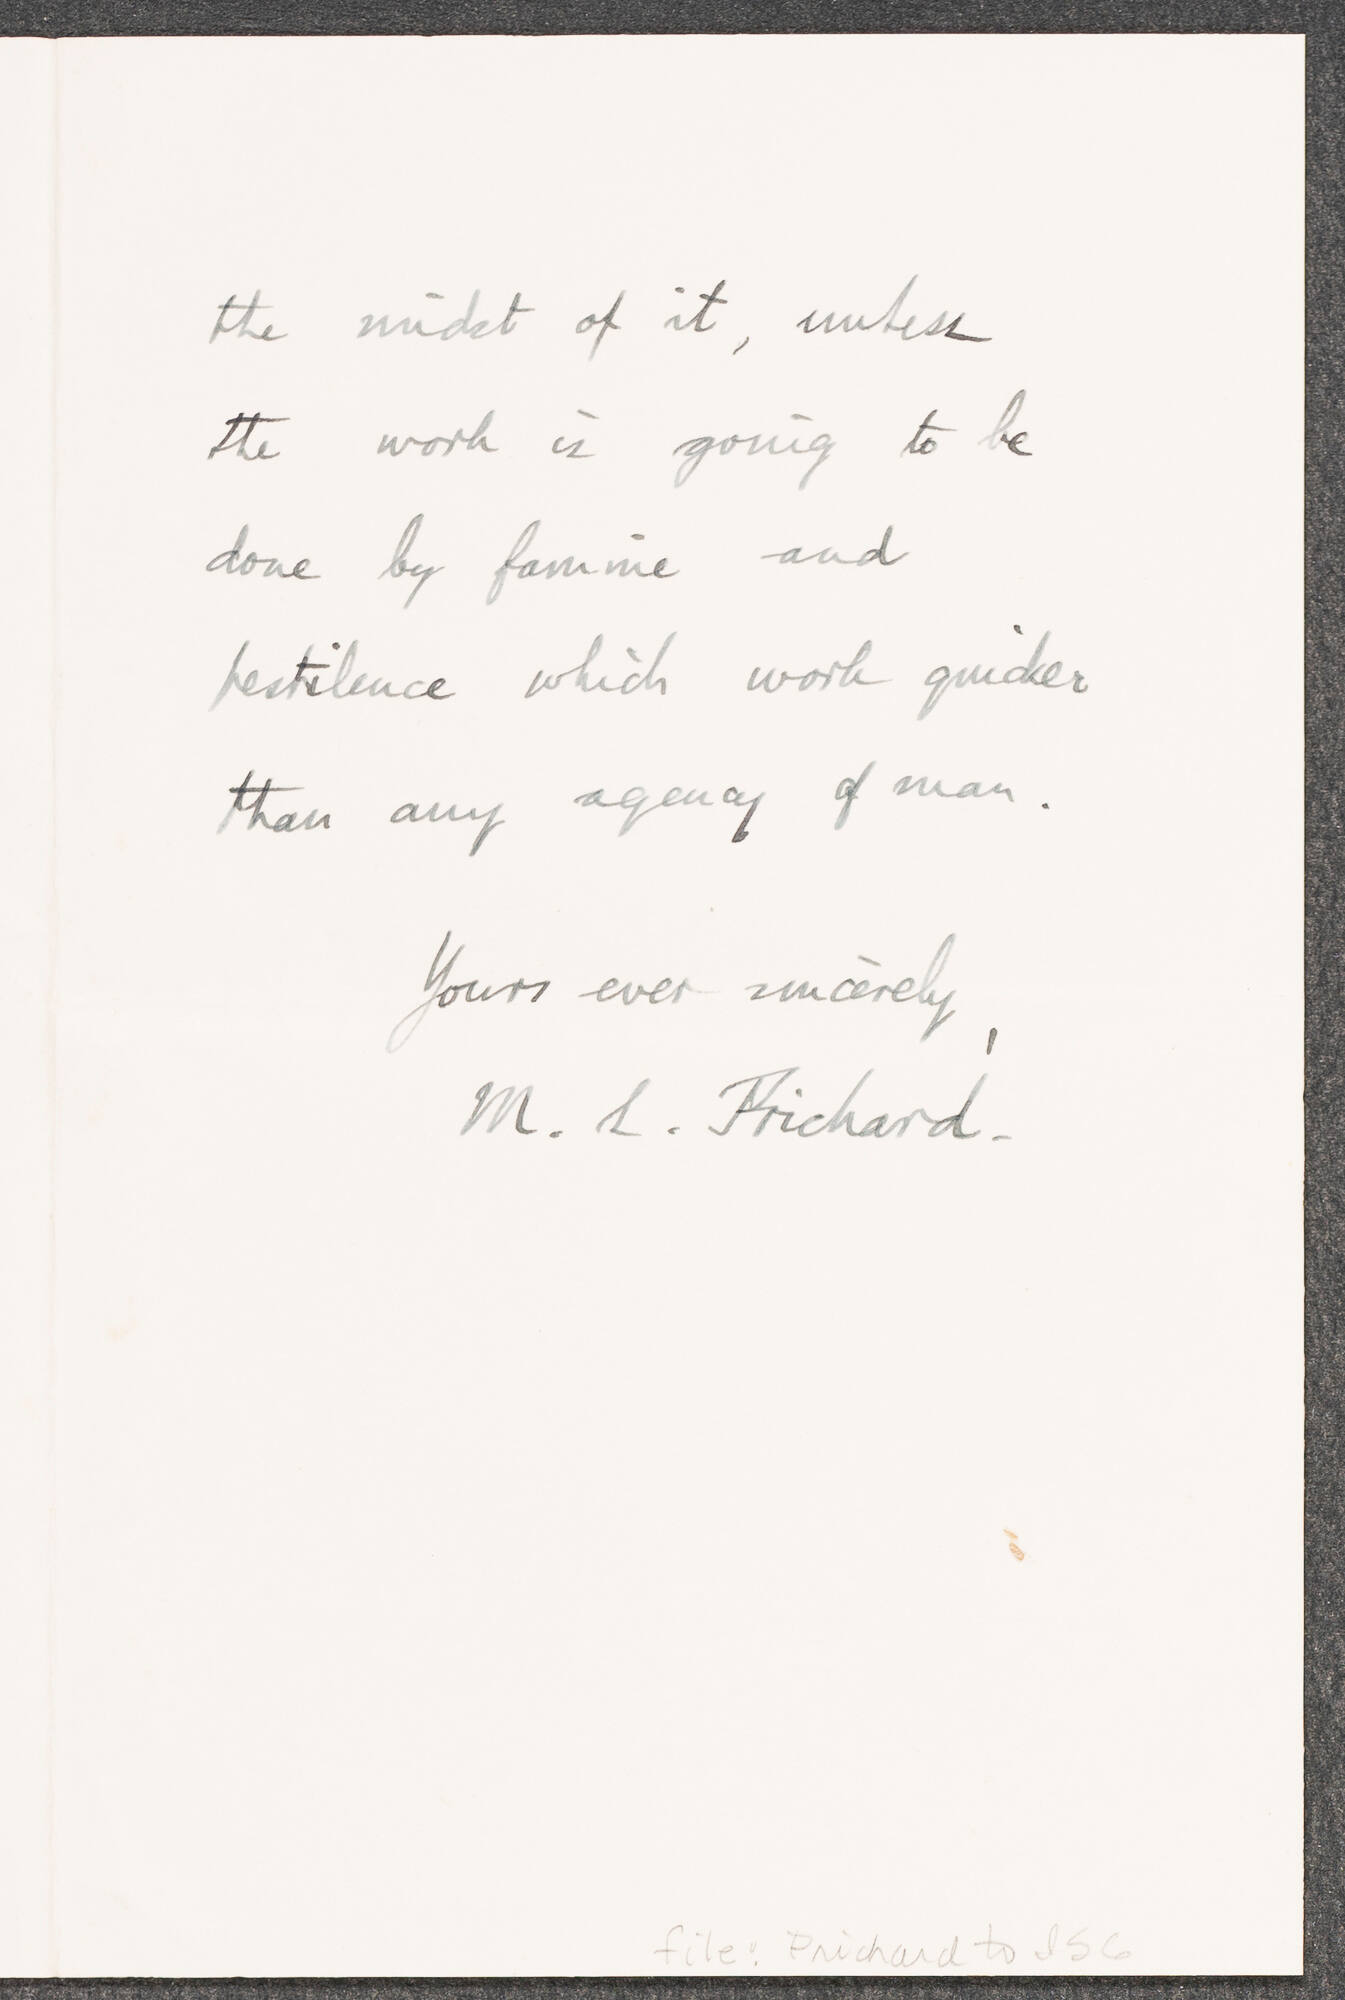 the midst of it, unless
the work is going to be
done by famine and
pestilence which work quicker
than any agency of man.
Yours ever sincerely,
M. S. Prichard.
file: Prichard to ISG